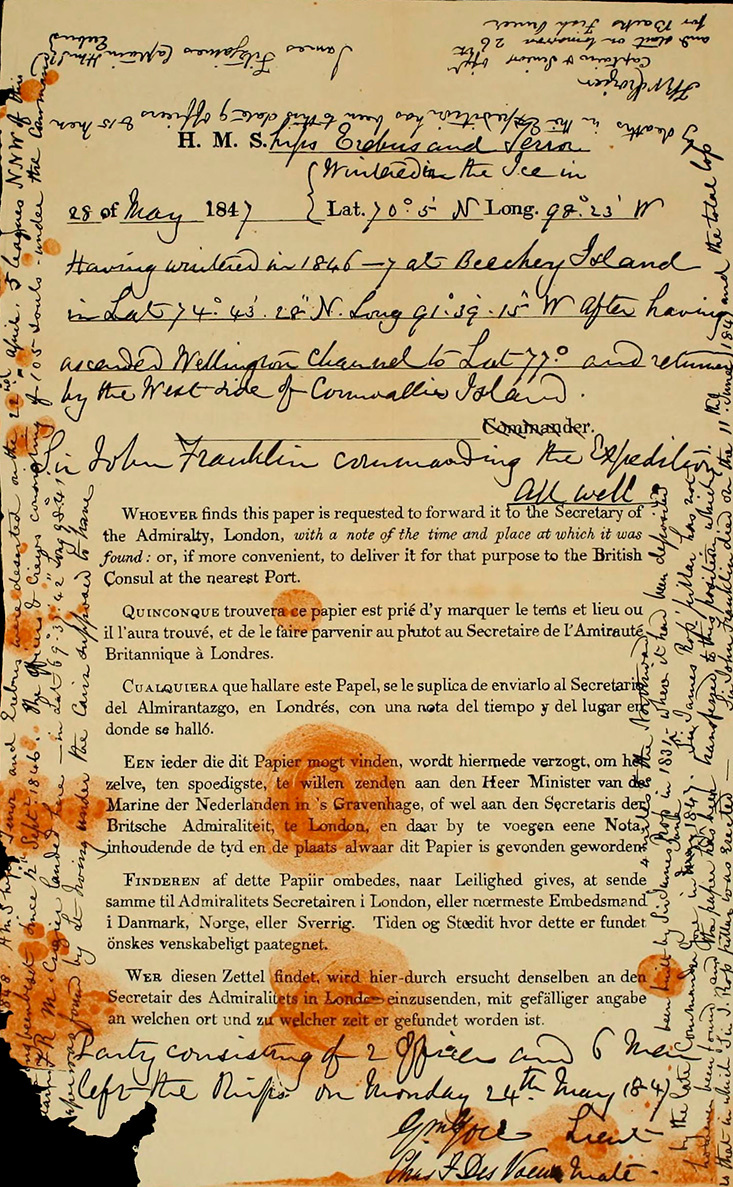 H. M. S.hips Erebus and Terror
Wintered in the Ice in
28 of May 1847 Lat. 70° 5' N Long. 98° 23' W
Having wintered in 1846–7 at Beechey Island
in Lat 74° 43' 28" N. Long 91° 39' 15" W After having
ascended Wellington Channel to Lat 77° and returned
by the West side of Cornwallis Island.
Commander.
Sir John Franklin commanding the Expedition
All well
WHOEVER finds this paper is requested to forward it to the Secretary of
the Admiralty, London, with a note of the time and place at which it was
found: or, if more convenient, to deliver it for that purpose to the British
Consul at the nearest Port.
QUINCONQUE trouvera ce papier est prié d'y marquer le tems et lieu ou
il l'aura trouvé, et de le faire parvenir au plutot au Secretaire de l'Amirauté
Britannique à Londres.
CUALQUIERA que hallare este Papel, se le suplica de enviarlo al Secretario
del Almirantazgo, en Londrés, con una nota del tiempo y del lugar en
donde se halló.
EEN ieder die dit Papier mogt vinden, wordt hiermede verzogt, om het
zelve, ten spoedigste, te willen zenden aan den Heer Minister van de
Marine der Nederlanden in 's Gravenhage, of wel aan den Secretaris den
Britsche Admiraliteit, te London, en daar by te voegen eene Nota,
inhoudende de tyd en de plaats alwaar dit Papier is gevonden geworden
FINDEREN af dette Papiir ombedes, naar Leilighed gives, at sende
samme til Admiralitets Secretairen i London, eller nœrmeste Embedsmand
i Danmark, Norge, eller Sverrig. Tiden og Stœdit hvor dette er fundet
önskes venskabeligt paategnet.
WER diesen Zettel findet, wird hier-durch ersucht denselben an den
Secretair des Admiralitets in London einzusenden, mit gefälliger angabe
an welchen ort und zu welcher zeit er gefundet worden ist.
Party consisting of 2 Officers and 6 Men
left the Ships on Monday 24th May 1847
Gm Gore Lieut
Chas F Des Voeux Mate
1848 H M Ships Terror and Erebus were deserted on the 22nd April, 5 leagues NNW of this
since 12th Sept. 1846. The Officers & Crews consisting of 105 souls under the command
F R M Crozier landed here – in Lat 69° 37' 42" Long 98° 41'
paper was found by Lt Irving under the Cairn supposed to have
been built by Sir James Ross in 1831 – where it had been deposited
4 miles to the Northward
by the late Commander Gore in June 1847. Sir James Ross' pillar has not
however been found and the paper has been transferred to this position which
is that in which Sir J. Ross pillar was erected – Sir John Franklin died on the 11th June 1847 and the total loss
by deaths in the Expedition has been to this date 9 officers & 15 men
James Fitzjames Captain HMS Erebus
F R M Crozier
Captain & Senior Offr
and start on tomorrow 26th
for Backs Fish River